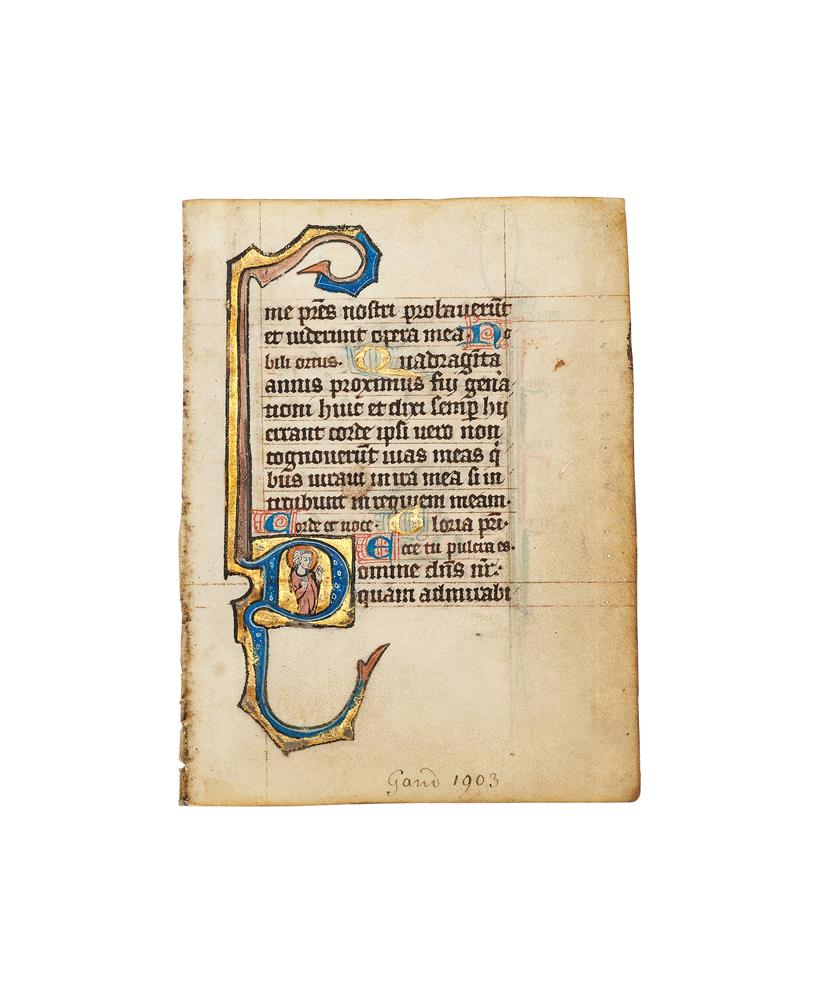 me pr̃es nostri probauerūt
et uiderunt opera mea No
bili ortus. Quadraginta
annis proximus fui gena
tioni huic et dixi semp hij
errant corde ipsi uero non
cognouerūt uias meas q̇
bus iuraui in ira mea si in
troibunt in requiem meam.
Corde et uoce. Gloria pr̃i.
Ecce tu pulcra es.
Domine dñs nr̃.
quam admirabi
Gand 1903